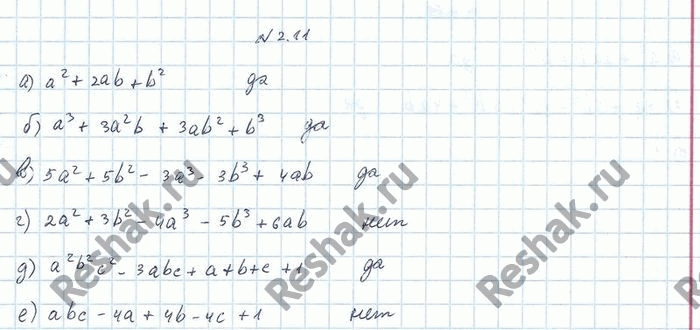 № 2.11
а) a² + 2ab + b² да
б) a³ + 3a²b + 3ab² + b³ да
в) 5a² + 5b² - 3a³ - 3b³ + 4ab да
г) 2a² + 3b² - 4a³ - 5b³ + 6ab нет
д) a²b²c² - 3abc + a + b + c + 1 да
е) abc - 4a + 4b - 4c + 1 нет
Reshak.ru
Reshak.ru
Reshak.ru
Reshak.ru